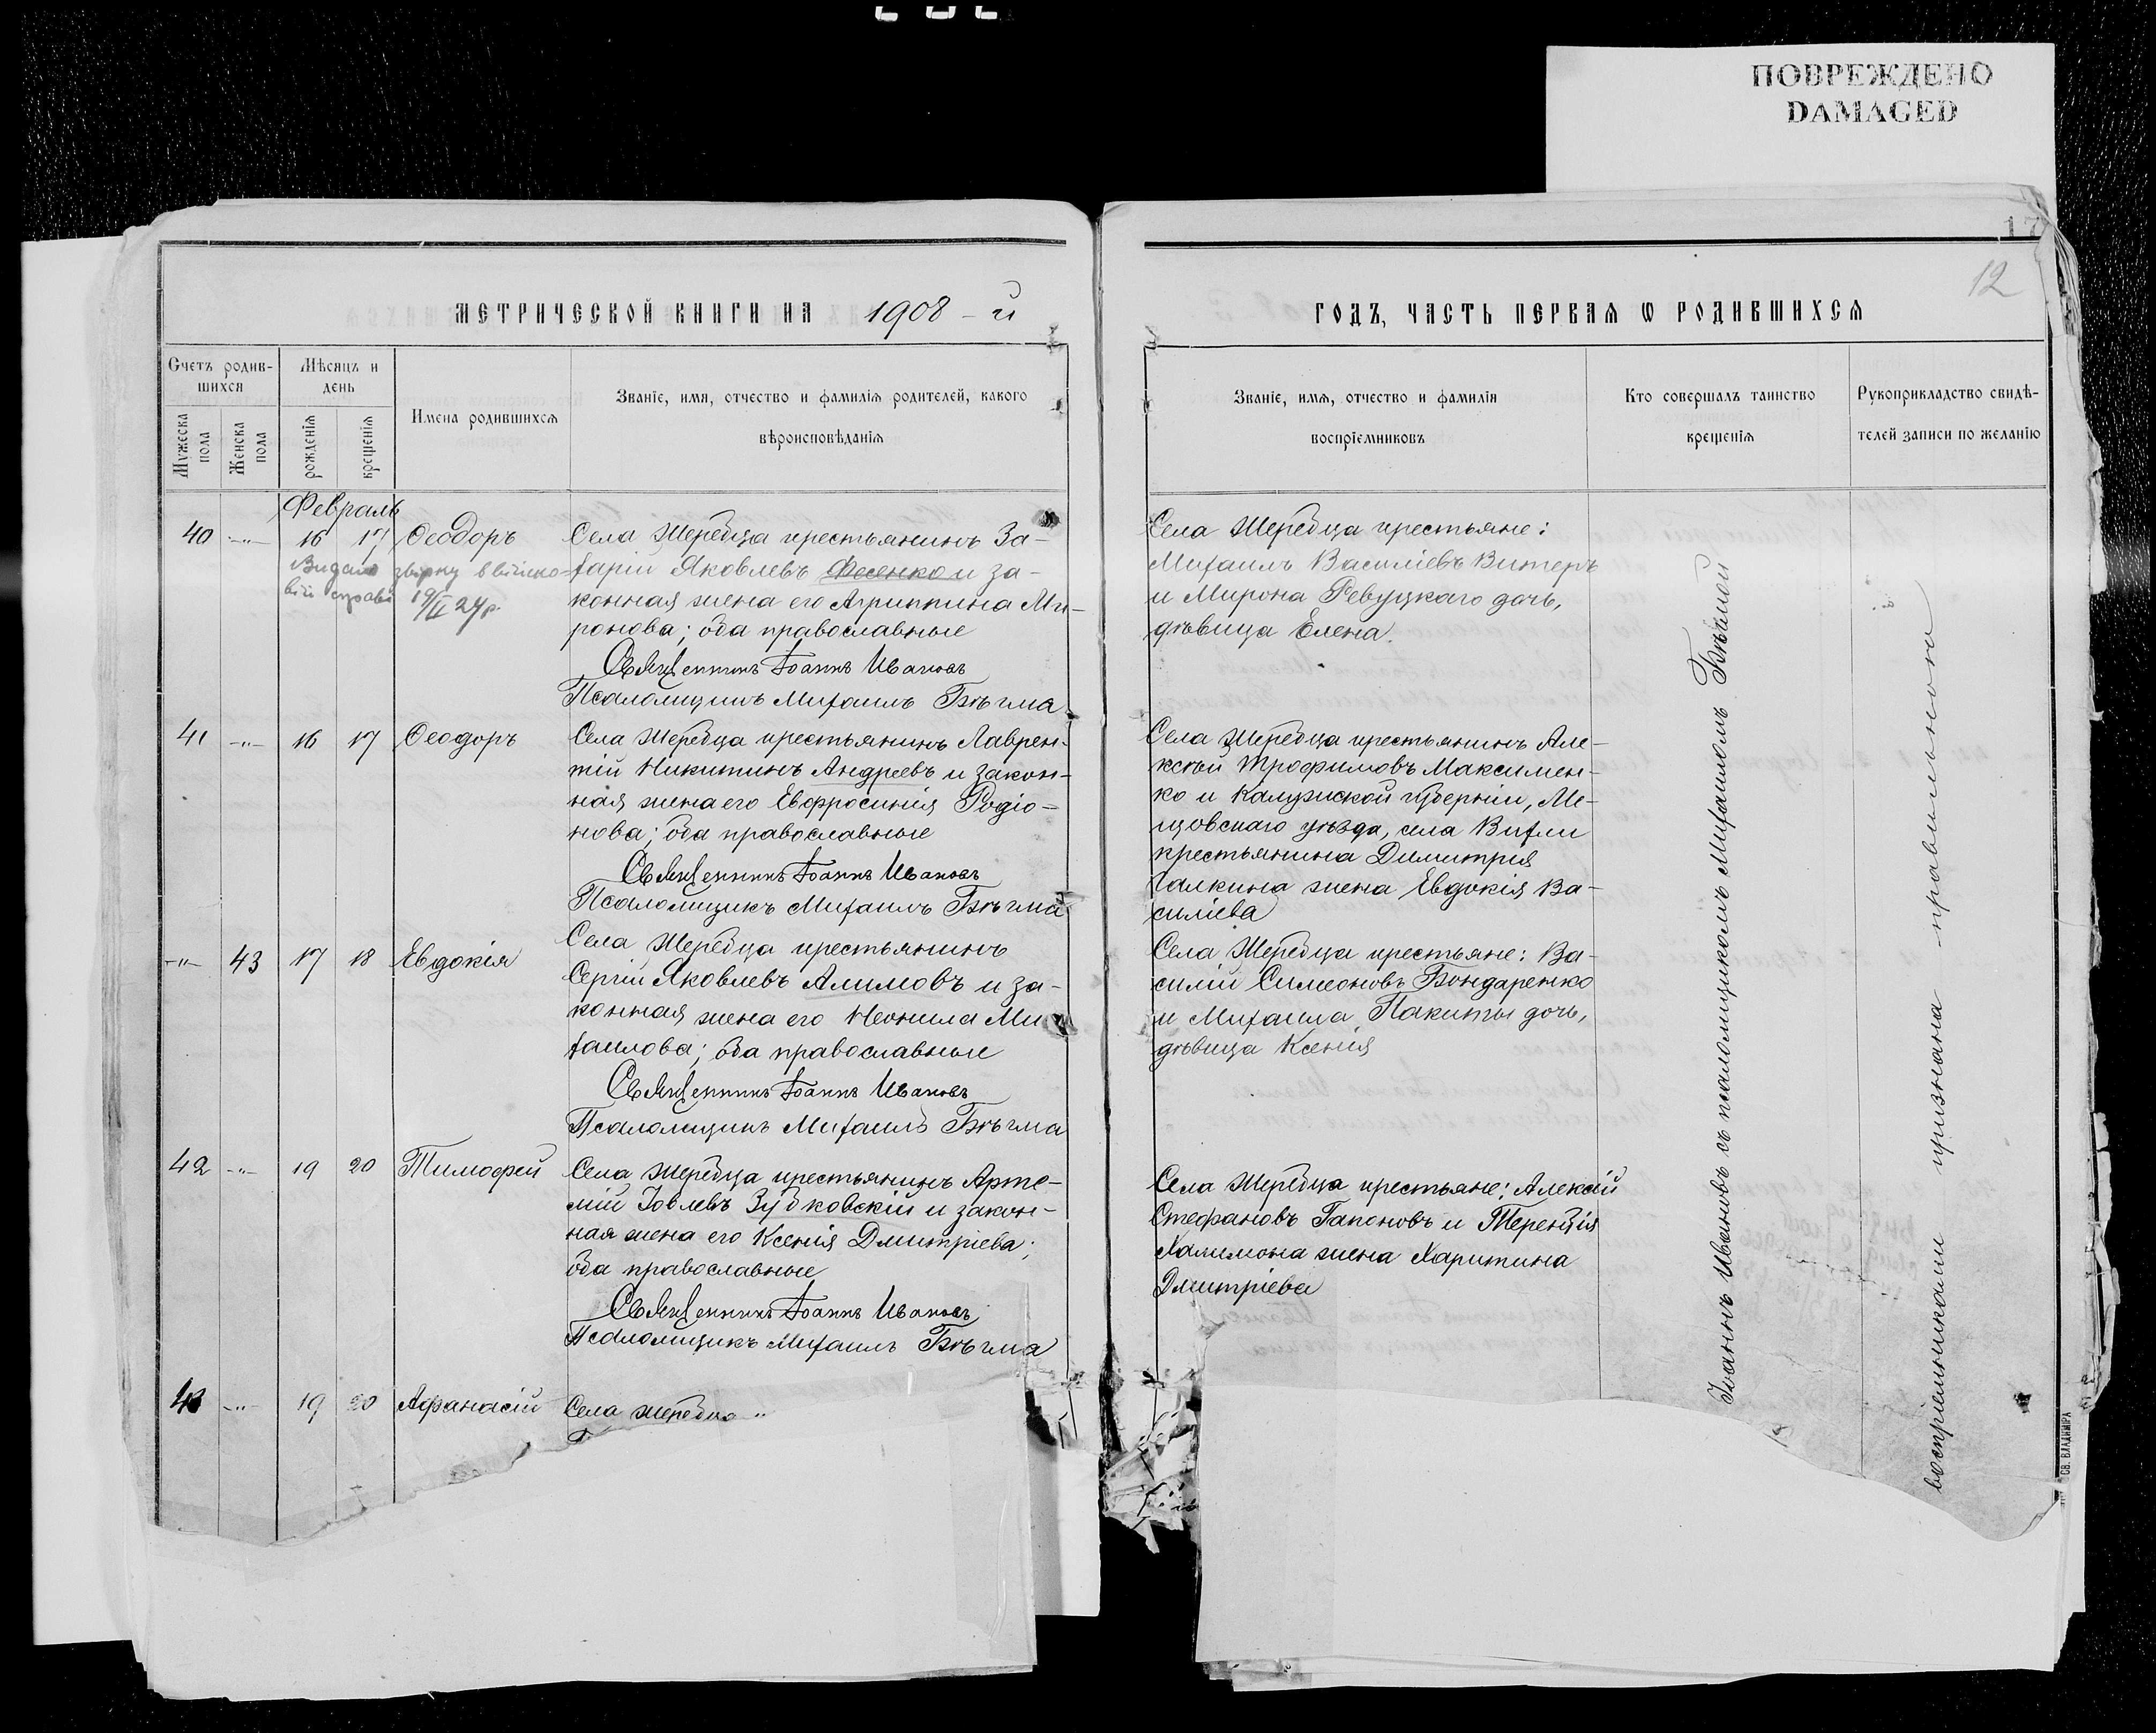 ПОВРЕЖДЕНО
DAMAGED
17
12
МЕТРИЧЕСКОЙ КНИГИ НА 1908-й
ГОДЪ, ЧАСТЬ ПЕРВАЯ Ѡ РОДИВШИХСЯ
Счетъ родив-
шихся
Мужеска пола
Женска пола
Мѣсяцъ и
день
рожденія
крещенія
Имена родившихся
Званіе, имя, отчество и фамилія родителей, какого
вѣроисповѣданія
Званіе, имя, отчество и фамилія
воспріемниковъ
Кто совершалъ таинство
крещенія
Рукоприкладство свидѣ-
телей записи по желанію
Февраль
40 -"- 16 17 Ѳеодоръ
Видано звірку в військо-
вій справі 19/II 24 р.
Села Жеребца крестьянинъ За-
харій Яковлевъ Фесенко и за-
конная жена его Агриппина Ми-
ронова; оба православные
Священникъ Іоаннъ Ивановъ
Псаломщикъ Михаилъ Бѣгма
Села Жеребца крестьяне:
Михаилъ Василіевъ Витеръ
и Мирона Ревуцкаго дочь,
дѣвица Елена.
41 -"- 16 17 Ѳеодоръ
Села Жеребца крестьянинъ Лаврен-
тій Никитинъ Андреевъ и закон-
ная жена его Евфросинія Родіо-
нова; оба православные
Священникъ Іоаннъ Ивановъ
Псаломщикъ Михаилъ Бѣгма
Села Жеребца крестьянинъ Але-
ксѣй Трофимовъ Максимен-
ко и Калужской губерніи, Ме-
щовскаго уѣзда, села
крестьянина Димитрія
Галкина жена Евдокія Ва-
силіева
-"- 43 17 18 Евдокія
Села Жеребца крестьянинъ
Сергій Яковлевъ Алимовъ и за-
конная жена его Неонила Ми-
хаилова; оба православные
Священникъ Іоаннъ Ивановъ
Псаломщикъ Михаилъ Бѣгма
Села Жеребца крестьяне: Ва-
силій Симеоновъ Бондаренко
и Михаила Пакиты дочь,
дѣвица Ксенія
42 -"- 19 20 Тимофей
Села Жеребца крестьянинъ Арте-
мій Іовлевъ Зубковскій и закон-
ная жена его Ксенія Дмитріева;
оба православные
Священникъ Іоаннъ Ивановъ
Псаломщикъ Михаилъ Бѣгма
Села Жеребца крестьяне: Алексій
Стефановъ Гапоновъ и Терентія
Халимона жена Харитина
Дмитріева
43 -"- 19 20 Афанасій
Села Жеребца
Іоаннъ Ивановъ съ псаломщикомъ Михаиломъ Бѣгмой
воспріемниками признана правильною
СВ. ВЛАДИМІРА